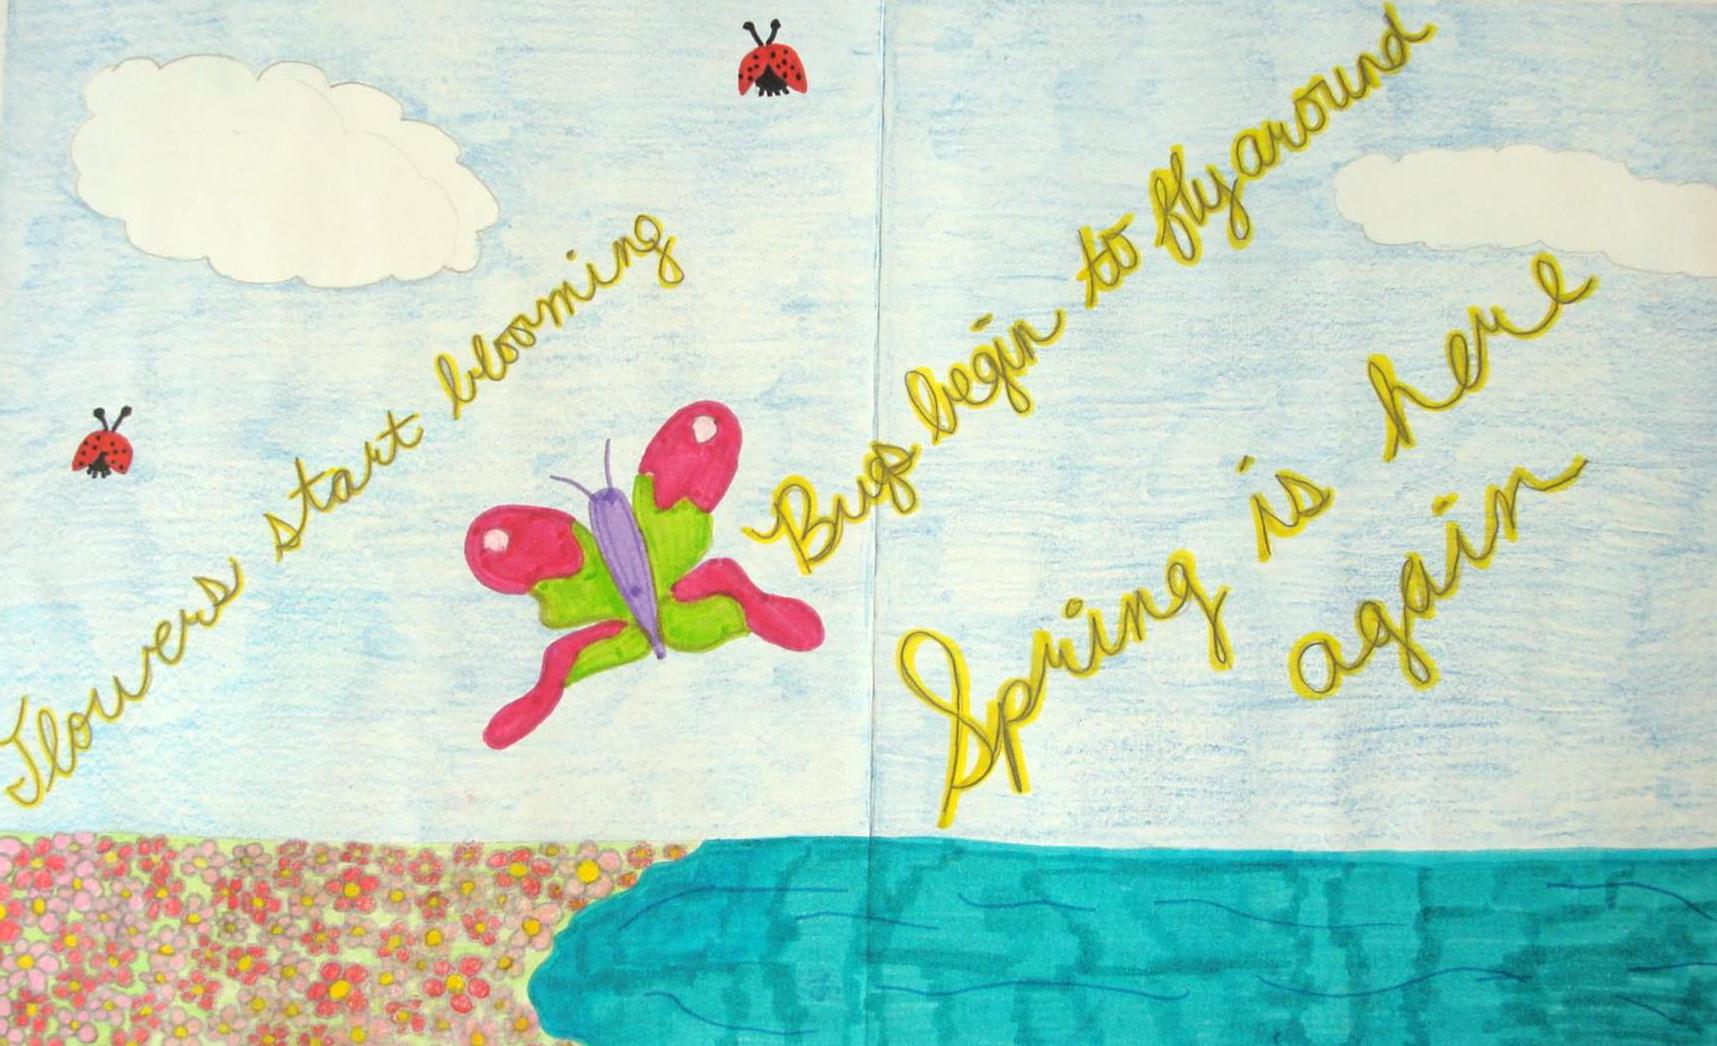 Flowers start blooming
Bugs begin to fly around
Spring is here
again